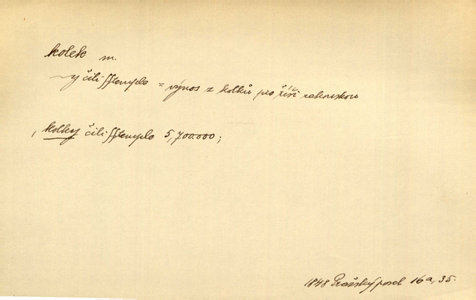 kolek m.
~y čili štemplo = výnos z kolků po říši rakouskou
, kolky čili štemplo 5,700.000;
1848 Pražský posel 16a, 35.